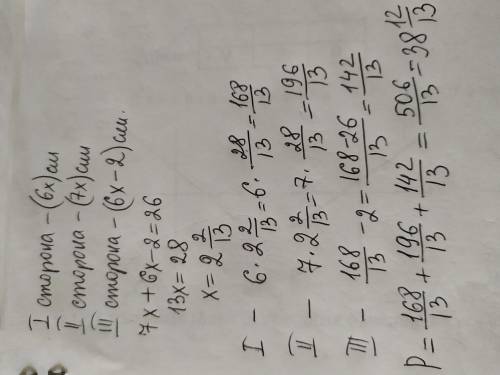 I сторона – (6x) см
II сторона – (7x) см
III сторона – (6x-2) см.
7x + 6x - 2 = 26
13x = 28
x = 2 2/13
I – 6 · 2 2/13 = 6 · 28/13 = 168/13
II – 7 · 2 2/13 = 7 · 28/13 = 196/13
III – 168/13 - 2 = 168-26/13 = 142/13
P = 168/13 + 196/13 + 142/13 = 506/13 = 38 12/13